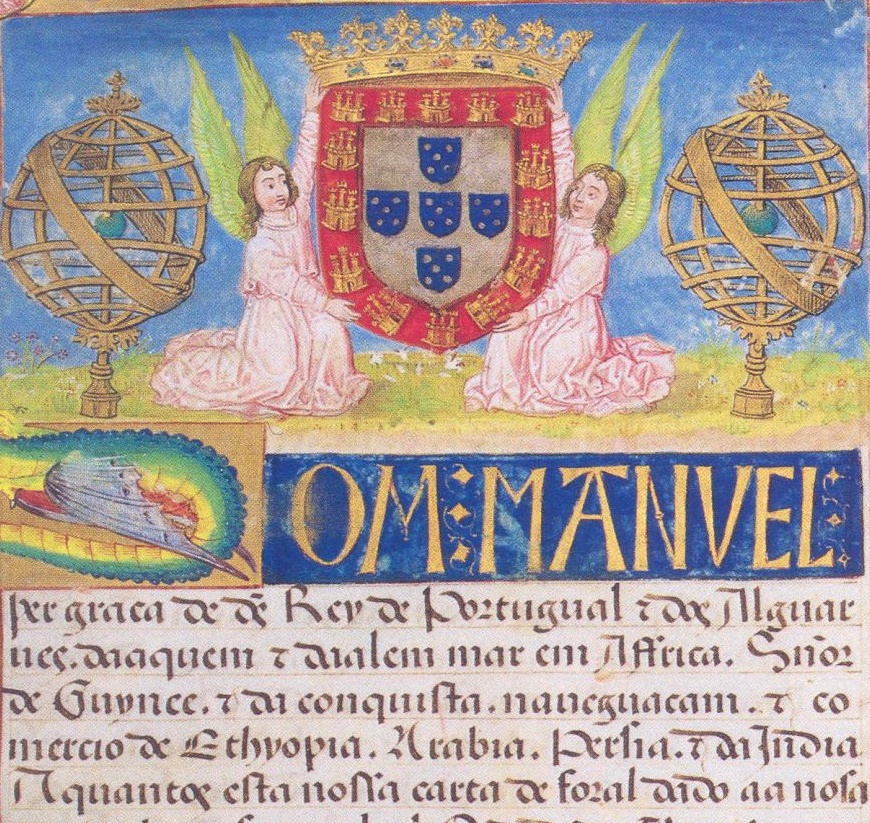 DOM: MANVEL:
per graca de ds Rey de Portugual ⁊ dos Alguar
ues. daaquem ⁊ daalem mar em Affrica. Sñor
de Guynee. ⁊ da conquista. naueguacam. ⁊ co
mercio de Ethyopia. Arabia. Persia. ⁊ da India
A quantos esta nossa carta de foral dado aa nosa